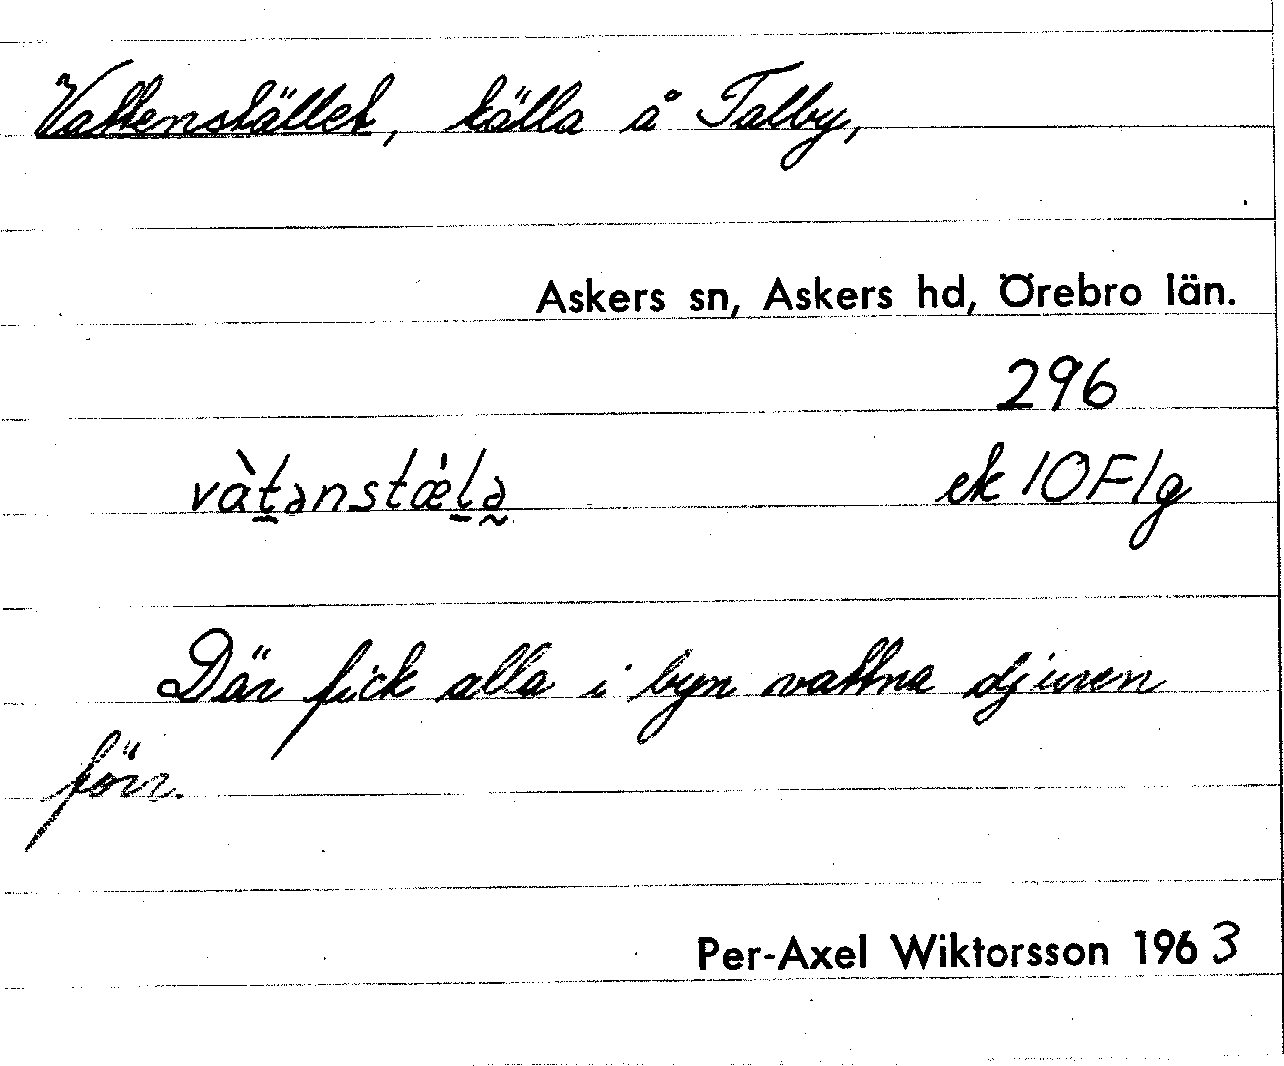 Vattenstället, källa å Talby,
Askers sn, Askers hd, Örebro län.
296
vàt̠ənstǽl̠ə̰ ek 10F1g
Där fick alla i byn vattna djuren
förr.
Per-Axel Wiktorsson 1963